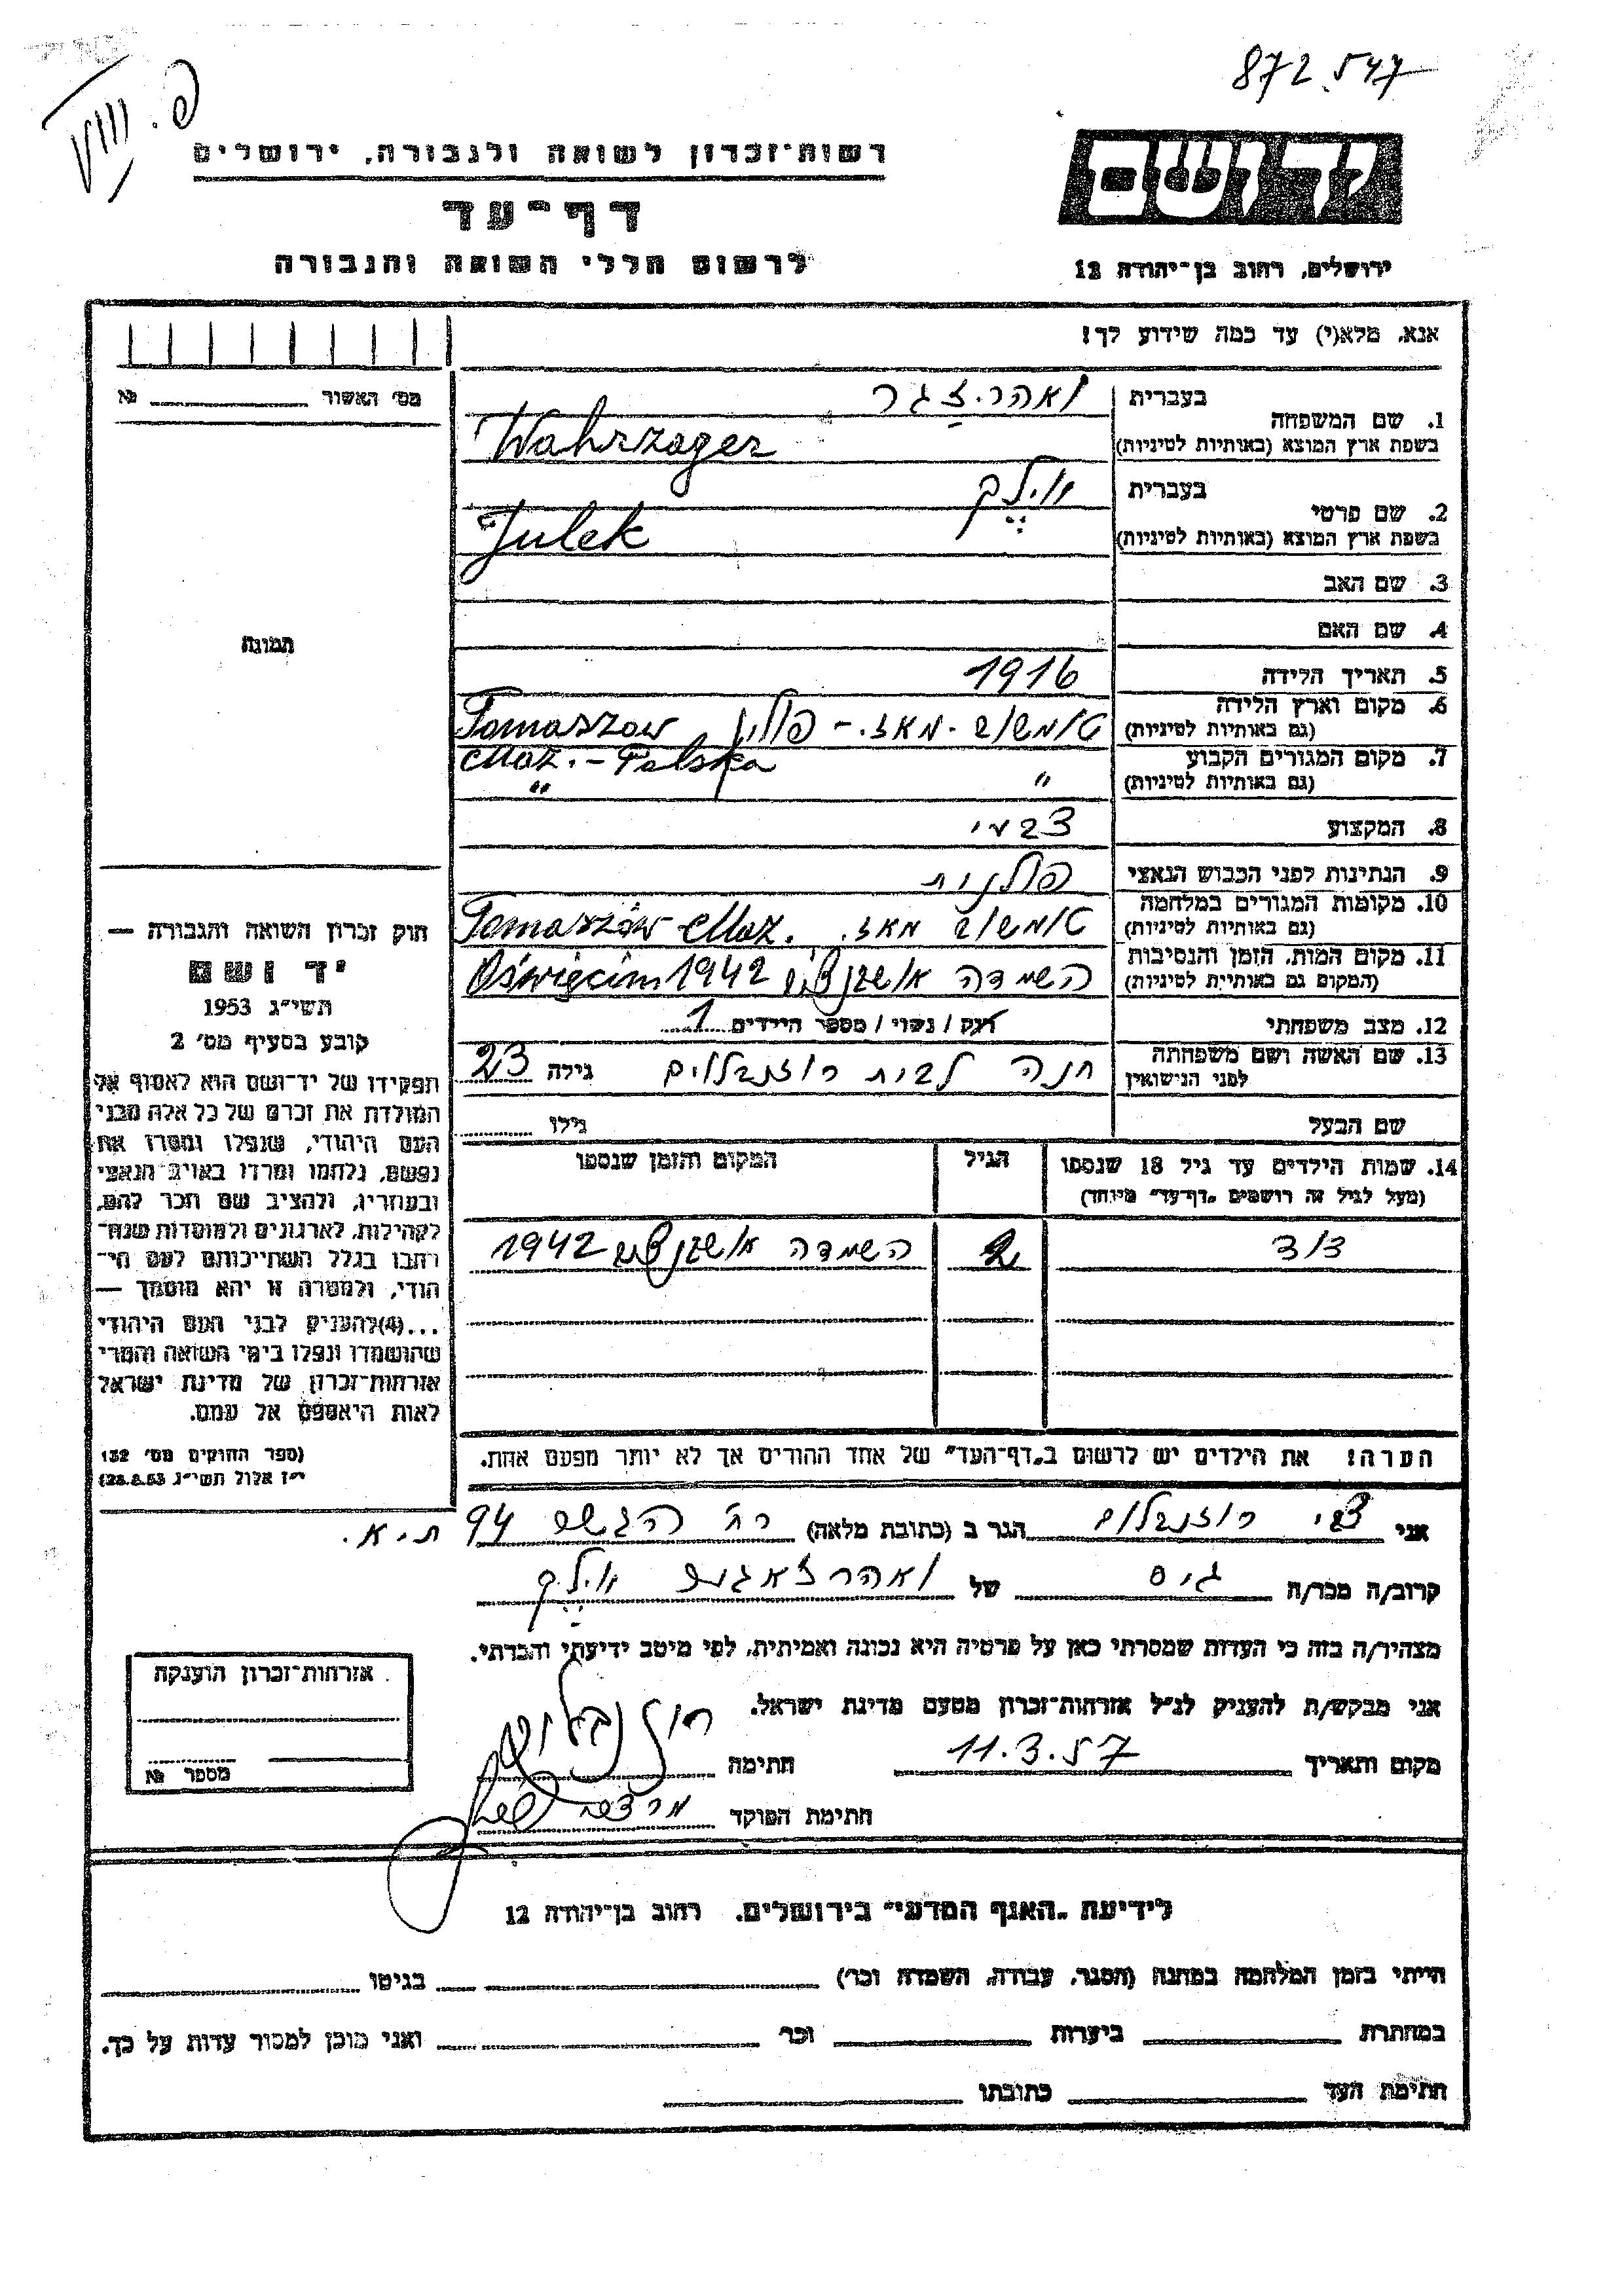 872.547
פ. VIII
רשות־זכרון לשואה ולגבורה, ירושלים
דף־עד
לרשום חללי השואה והגבורה
יד ושם
ירושלים, רחוב בן־יהודה 12
אנא, מלא(י) עד כמה שידוע לך!
מס' האשור № ________
1. שם המשפחה
בעברית
ואהר.זגר
בשפת ארץ המוצא (באותיות לטיניות)
Wahrzager
2. שם פרטי
בעברית
יולק
בשפת ארץ המוצא (באותיות לטיניות)
Julek
3. שם האב
4. שם האם
5. תאריך הלידה 1916
6. מקום וארץ הלידה
(גם באותיות לטיניות)
טומשוב .מאז. – פולין Tomaszow
Maz. – Polska
7. מקום המגורים הקבוע
(גם באותיות לטיניות)
" "
8. המקצוע צבעי
9. הנתינות לפני הכבוש הנאצי פולנית
10. מקומות המגורים במלחמה
(גם באותיות לטיניות)
טומשוב מאז. Tomaszów Maz.
11. מקום המות, הזמן והנסיבות
(המקום גם באותיות לטיניות)
השמדה אושבנצים Oświęcim 1942
12. מצב משפחתי רוק / נשוי / מספר הילדים 1
13. שם האשה ושם משפחתה
לפני הנישואין
חנה לבית רוזנבלום גילה 23
שם הבעל גילו
14. שמות הילדים עד גיל 18 שנספו
(מעל לגיל זה רושמים „דף־עד" מיוחד)
הגיל
המקום והזמן שנספו
דוד 2 השמדה אושבנצים 1942
הערה! את הילדים יש לרשום ב„דף־העד" של אחד ההורים אך לא יותר מפעם אחת.
תמונה
חוק זכרון השואה והגבורה —
יד ושם
תשי"ג 1953
קובע בסעיף מס' 2
תפקידו של יד־ושם הוא לאסוף אל
המולדת את זכרם של כל אלה מבני
העם היהודי, שנפלו ומסרו את
נפשם, נלחמו ומרדו באויב הנאצי
ובעוזריו, ולהציב שם וזכר להם,
לקהילות, לארגונים ולמוסדות שנח־
רבו בגלל השתייכותם לעם הי־
הודי, ולמטרה זו יהא מוסמך —
...(4) להעניק לבני העם היהודי
שהושמדו ונפלו בימי השואה והמרי
אזרחות־זכרון של מדינת ישראל
לאות היאספם אל עמם.
(ספר החוקים מס' 132
י"ז אלול תשי"ג 28.8.53)
אני צבי רוזנבלום הגר ב (כתובת מלאה) רח 94 ת.א.
קרוב/ה מכר/ה גיס של יולק
מצהיר/ה בזה כי העדות שמסרתי כאן על פרטיה היא נכונה ואמיתית, לפי מיטב ידיעתי והכרתי.
אני מבקש/ת להעניק לנ"ל אזרחות־זכרון מטעם מדינת ישראל.
מקום ותאריך 11.3.57 חתימה רוזנבלום
חתימת הפוקד
אזרחות־זכרון הוענקה
מספר №
לידיעת „האגף המדעי" בירושלים, רחוב בן־יהודה 12
הייתי בזמן המלחמה במחנה (הסגר, עבודה, השמדה וכו') ________ בגיטו ________
במחתרת ________ ביערות ________ וכו' ________ ואני מוכן למסור עדות על כך.
חתימת העד ________ כתובתו ________